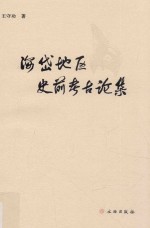 王守功 著
海岱地区
史前考古论集
文物出版社